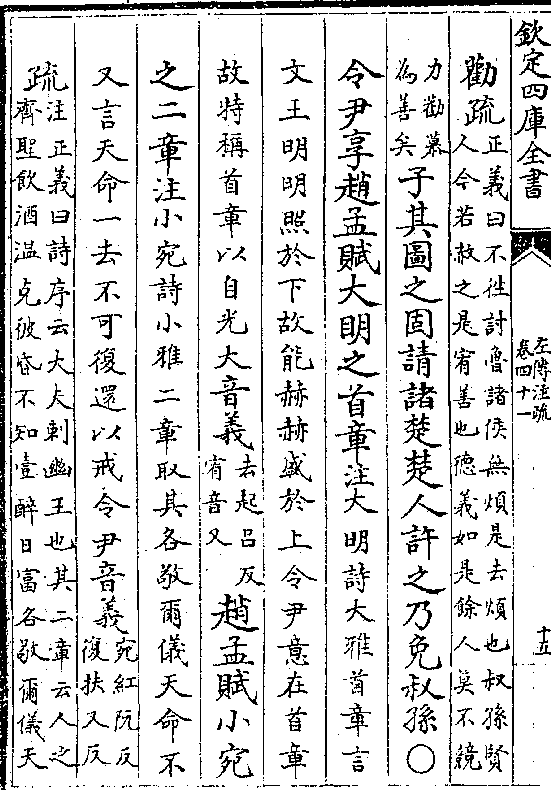 欽定四庫全書
左傳注疏
卷四十一
十五
勸疏正義曰不徃討魯諸侯無煩是去煩也叔孫賢
人今若赦之是宥善也德義如是餘人莫不競
力勸慕
為善矣子其圖之固請諸楚楚人許之乃免叔孫〇
令尹享趙孟賦大明之首章注大明詩大雅首章言
文王明明照於下故能赫赫盛於上令尹意在首章
故特稱首章以自光大音義去起呂反
宥音又趙孟賦小宛
之二章注小宛詩小雅二章取其各敬爾儀天命不
又言天命一去不可復還以戒令尹音義宛紅阮反
復扶又反
疏注正義曰詩序云大夫刺幽王也其二章云人之
齊聖飲酒温克彼昏不知壹醉日富各敬爾儀天